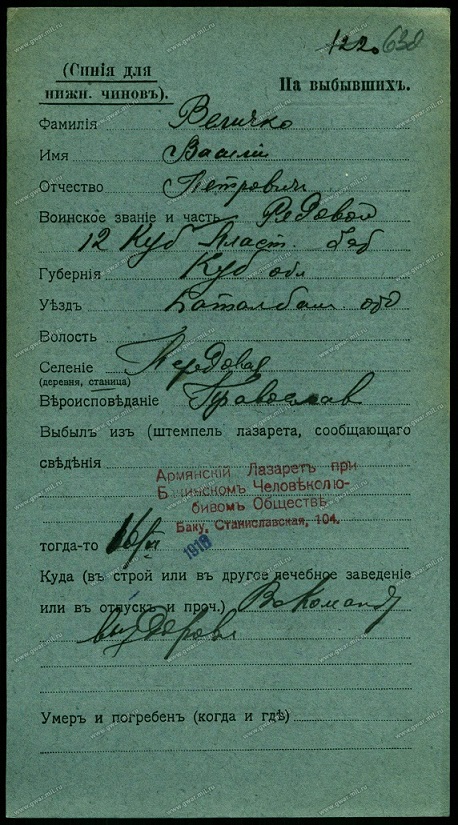 122. 638
(Синія для
нижн. чиновъ).
На выбывшихъ.
Фамилія Величко
Имя Василій
Отчество Петровичъ
Воинское званіе и часть Рядовой
12 Куб Пласт. бат
Губернія Куб обл
Уѣздъ Баталпаш отд
Волость
Селеніе Передовая
(деревня, станица)
Вѣроисповѣданіе Православ
Выбылъ изъ (штемпель лазарета, сообщающаго
свѣдѣнія
Армянскій Лазаретъ при
Бакинскомъ Человѣколю-
бивомъ Обществѣ
Баку, Станиславская, 104.
тогда-то 16/VI 1916
Куда (въ строй или въ другое лечебное заведеніе
или въ отпускъ и проч.) В команд
выздоровл
Умеръ и погребенъ (когда и гдѣ)
www.gwar.mil.ru